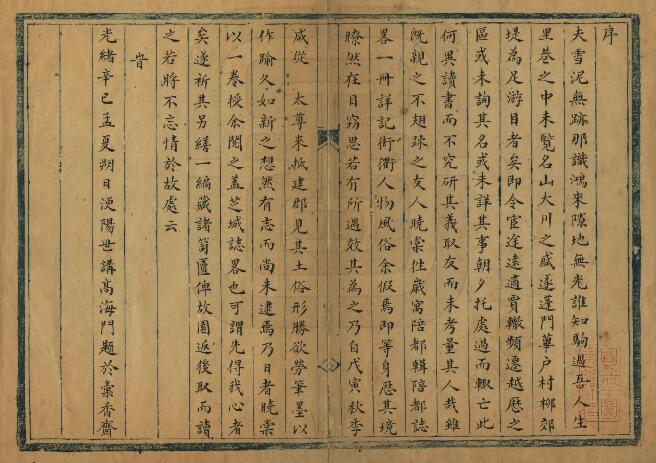 序
夫雪泥無跡那識鴻來隙地無光誰知駒過吾人生
里巷之中未覽名山大川之盛遂蓬門蓽戶村柳郊
堤為足游目者矣即令宦途遠適賈轍頻遷越歷之
區或未詢其名或未詳其事朝夕托處過而輒亡此
何異讀書而不究研其義取友而未考量其人哉雖
既親之不翅疎之友人曉棠往歲寓陪都輯陪都誌
畧一冊詳記街衢人物風俗余假焉即等身歷其境
瞭然在目竊思若有所過效其為之乃自戊寅秋季
咸從　太尊來抵建郡見其土俗形勝欲勞筆墨以
作踰久如新之想然有志而尚未逮焉乃日者曉棠
以一卷授余閱之蓋芝城誌畧也可謂先得我心者
矣遂祈其另繕一編藏諸笥匱俾故園返後取而讀
之若將不忘情於故處云
旹
光緒辛巳孟夏朔日浭陽世講高海門題於彙香齋